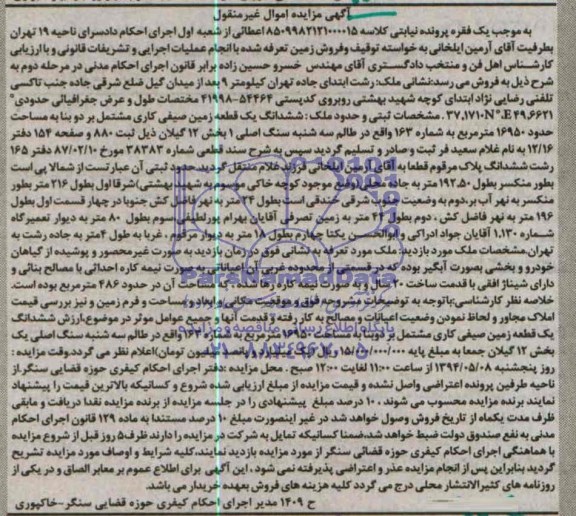 آگهی مزایده اموال غیرمنقول
به موجب یک فقره پرونده نیابتی کلاسه ۸۵۰۹۹۸۲۱۲۱۰۰۰۰۱۵ اعطائی از شعبه اول اجرای احکام دادسرای ناحیه ۱۹ تهران
بطرفیت آقای آرمین ایلخانی به خواسته توقیف وفروش زمین تعرفه شده با انجام عملیات اجرایی و تشریفات قانونی و با ارزیابی
کارشناس اهل فن و منتخب دادگستری آقای مهندس خسرو حسین زاده برابر قانون اجرای احکام مدنی در مرحله دوم به
شرح ذیل به فروش می رسد:نشانی ملک: رشت ابتدای جاده تهران کیلومتر ۹ بعد از میدان گیل ضلع شرقی جاده جنب تاکسی
تلفنی رضایی نژاد ابتدای کوچه شهید بهشتی روبروی کدپستی ۵۴۴۶۴-۴۱۹۹۸ مختصات طول و عرض جغرافیائی حدودی
۳۷,۱۷۱۰N°.E ۴۹,۶۶۲۱ . مشخصات ثبتی و حدود ملک : ششدانگ یک قطعه زمین صیفی کاری مشتمل بر دو بنا به مساحت
حدود ۱۶۹۵۰ مترمربع به شماره ۱۶۳ واقع در طالم سه شنبه سنگ اصلی ۱ بخش ۱۲ گیلان ذیل ثبت ۸۸۰ و صفحه ۱۵۴ دفتر
۱۲/۱۶ به نام غلام سعید فر ثبت و صادر و تسلیم گردید سپس به شرح سند قطعی شماره ۳۸۳۸۳ مورخ ۸۷/۰۲/۱۰ دفتر ۱۶۵
رشت ششدانگ پلاک مرقوم قطعا به آقای آرمین ایلخانی فرزند غلام منتقل گردید.حدود ثبتی آن عبارتست از شمالا پی است
بطور منکسر بطول ۱۹۲,۵۰ متر به جاده محلی (وضع موجود کوچه خاکی موسوم به شهید بهشتی)شرقا اول بطول ۲۱۶ متر بطور
منکسر به نهر آب بر،دوم به وضعیت جنوب شرقی خندقی است بطول ۲۴ متر به نهر فاضل کش جنوبا در چهار قسمت اول بطول
۱۹۶ متر به نهر فاضل کش ، دوم بطول ۴۴ متر به زمین تصرفی آقایان بهرام پورلطیفی سوم بطول ۸۰ متر به دیوار تعمیرگاه
شماره ۱,۱۳۰ آقایان جواد ادراکی و ابوالحسن یکتا چهارم بطول ۱۸ متر به دیوار مرقوم ، غربا به طول ۴متر به جاده رشت به
تهران.مشخصات ملک مورد بازدید: ملک مورد تعرفه به نشانی فوق در زمان بازدید به صورت غیرمحصور و پوشیده از گیاهان
خودرو و بخشی بصورت آبگیر بوده که در قسمتی از محدوده غربی آن اعیاناتی به صورت نیمه کاره احداثی با مصالح بنائی و
دارای شیناژ افقی با قدمت ساخت ۲۰ سال و به صورت نیمه کاره رها شده مساحت آن در حدود ۴۸۶ مترمربع بوده است.
خلاصه نظر کارشناسی:باتوجه به توضیحات مشروحه فوق و موقعیت مکانی و ابعاد و مساحت و فرم زمین و نیز بررسی قیمت
املاک مجاور و لحاظ نمودن وضعیت اعیانات و مصالح به کار رفته و قدمت آنها و جمیع عوامل موثر در موضوع،ارزش ششدانگ
یک قطعه زمین صیفی کاری مشتمل بر دو بنا به مساحت ۱۶۹۵۰ متر مربع به شماره ۱۶۳ واقع در طالم سه شنبه سنگ اصلی یک
بخش ۱۲ گیلان جمعا به مبلغ پایه میلیون تومان)اعلام نظر می گردد.وقت مزایده :
روز پنجشنبه ۱۳۹۴/۰۵/۰۸ از ساعت ۱۱:۰۰ لغایت ۱۲:۰۰ صبح . محل مزایده :دفتر اجرای احکام کیفری حوزه قضایی سنگر.از
ناحیه طرفین پرونده اعتراضی واصل نشده و قیمت مزایده از مبلغ ارزیابی شده شروع و کسانیکه بالاترین قیمت را پیشنهاد
نمایند برنده مزایده محسوب می شوند ، ۱۰ درصد مبلغ پیشنهادی را در جلسه مزایده از برنده مزایده نقدا دریافت و مابقی
ظرف مدت یکماه از تاریخ فروش وصول خواهد شد در غیر اینصورت مبلغ ۱۰ درصد مستندا به ماده ۱۲۹ قانون اجرای احکام
مدنی به نفع صندوق دولت ضبط خواهد شد،ضمنا کسانیکه تمایل به شرکت در مزایده را دارند ظرف ۵ روز قبل از شروع مزایده
با هماهنگی اجرای احکام کیفری حوزه قضائی سنگر از مورد مزایده بازدید نمایند.کلیه شرایط و اوصاف مورد مزایده تشریح
گردید بنابراین پس از انجام مزایده عذر و اعتراضی پذیرفته نمی شود ، این آگهی برای اطلاع عموم بر معابر الصاق و در یکی از
روزنامه های کثیرالانتشار محلی درج می گردد کلیه هزینه های فروش بعهده خریدار می باشد.
ح ۱۴۰۹ مدیر اجرای احکام کیفری حوزه قضایی سنگر-خاکپوری